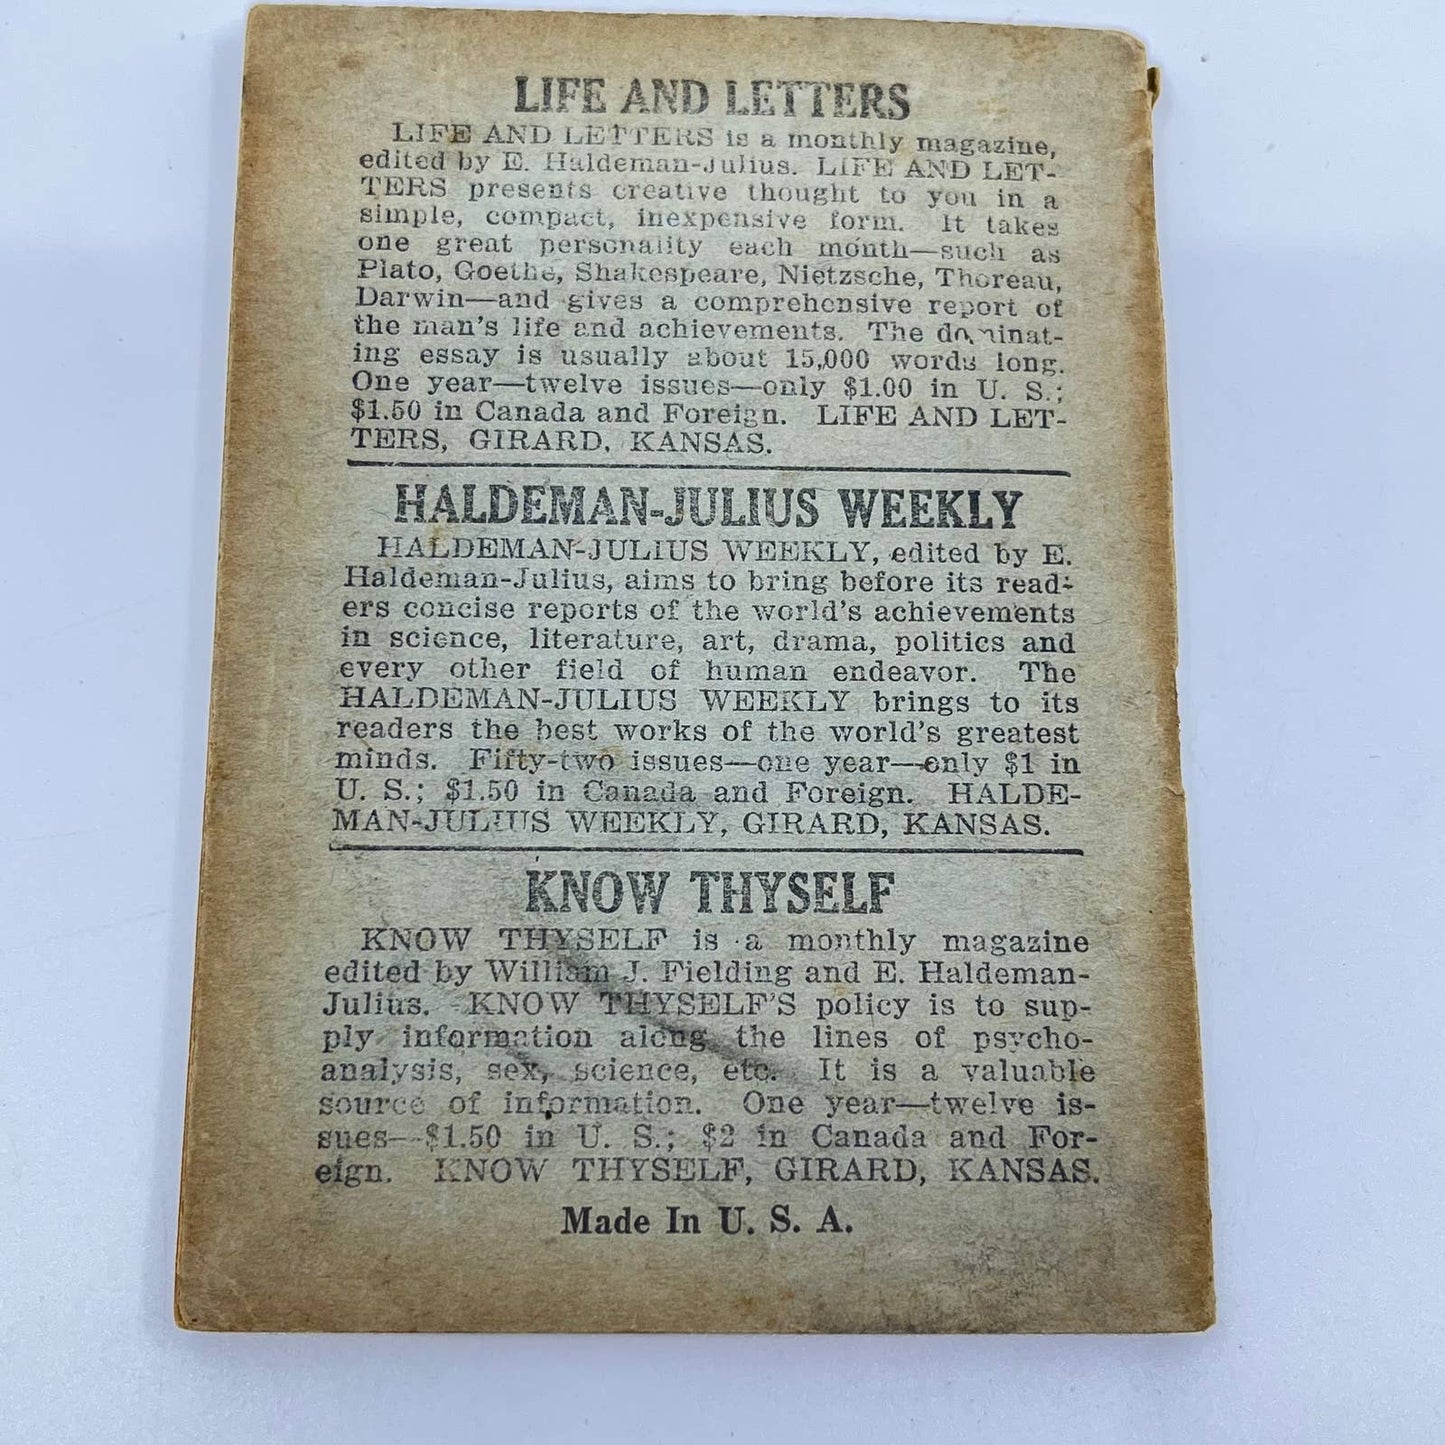 LIFE AND LETTERS
LIFE AND LETTERS is a monthly magazine,
edited by E. Haldeman-Julius. LIFE AND LET-
TERS presents creative thought to you in a
simple, compact, inexpensive form. It takes
one great personality each month—such as
Plato, Goethe, Shakespeare, Nietzsche, Thoreau,
Darwin—and gives a comprehensive report of
the man's life and achievements. The dominat-
ing essay is usually about 15,000 words long.
One year—twelve issues—only $1.00 in U. S.;
$1.50 in Canada and Foreign. LIFE AND LET-
TERS, GIRARD, KANSAS.
HALDEMAN-JULIUS WEEKLY
HALDEMAN-JULIUS WEEKLY, edited by E.
Haldeman-Julius, aims to bring before its read-
ers concise reports of the world's achievements
in science, literature, art, drama, politics and
every other field of human endeavor. The
HALDEMAN-JULIUS WEEKLY brings to its
readers the best works of the world's greatest
minds. Fifty-two issues—one year—only $1 in
U. S.; $1.50 in Canada and Foreign. HALDE-
MAN-JULIUS WEEKLY, GIRARD, KANSAS.
KNOW THYSELF
KNOW THYSELF is a monthly magazine
edited by William J. Fielding and E. Haldeman-
Julius. KNOW THYSELF'S policy is to sup-
ply information along the lines of psycho-
analysis, sex, science, etc. It is a valuable
source of information. One year—twelve is-
sues—$1.50 in U. S.; $2 in Canada and For-
eign. KNOW THYSELF, GIRARD, KANSAS.
Made In U. S. A.